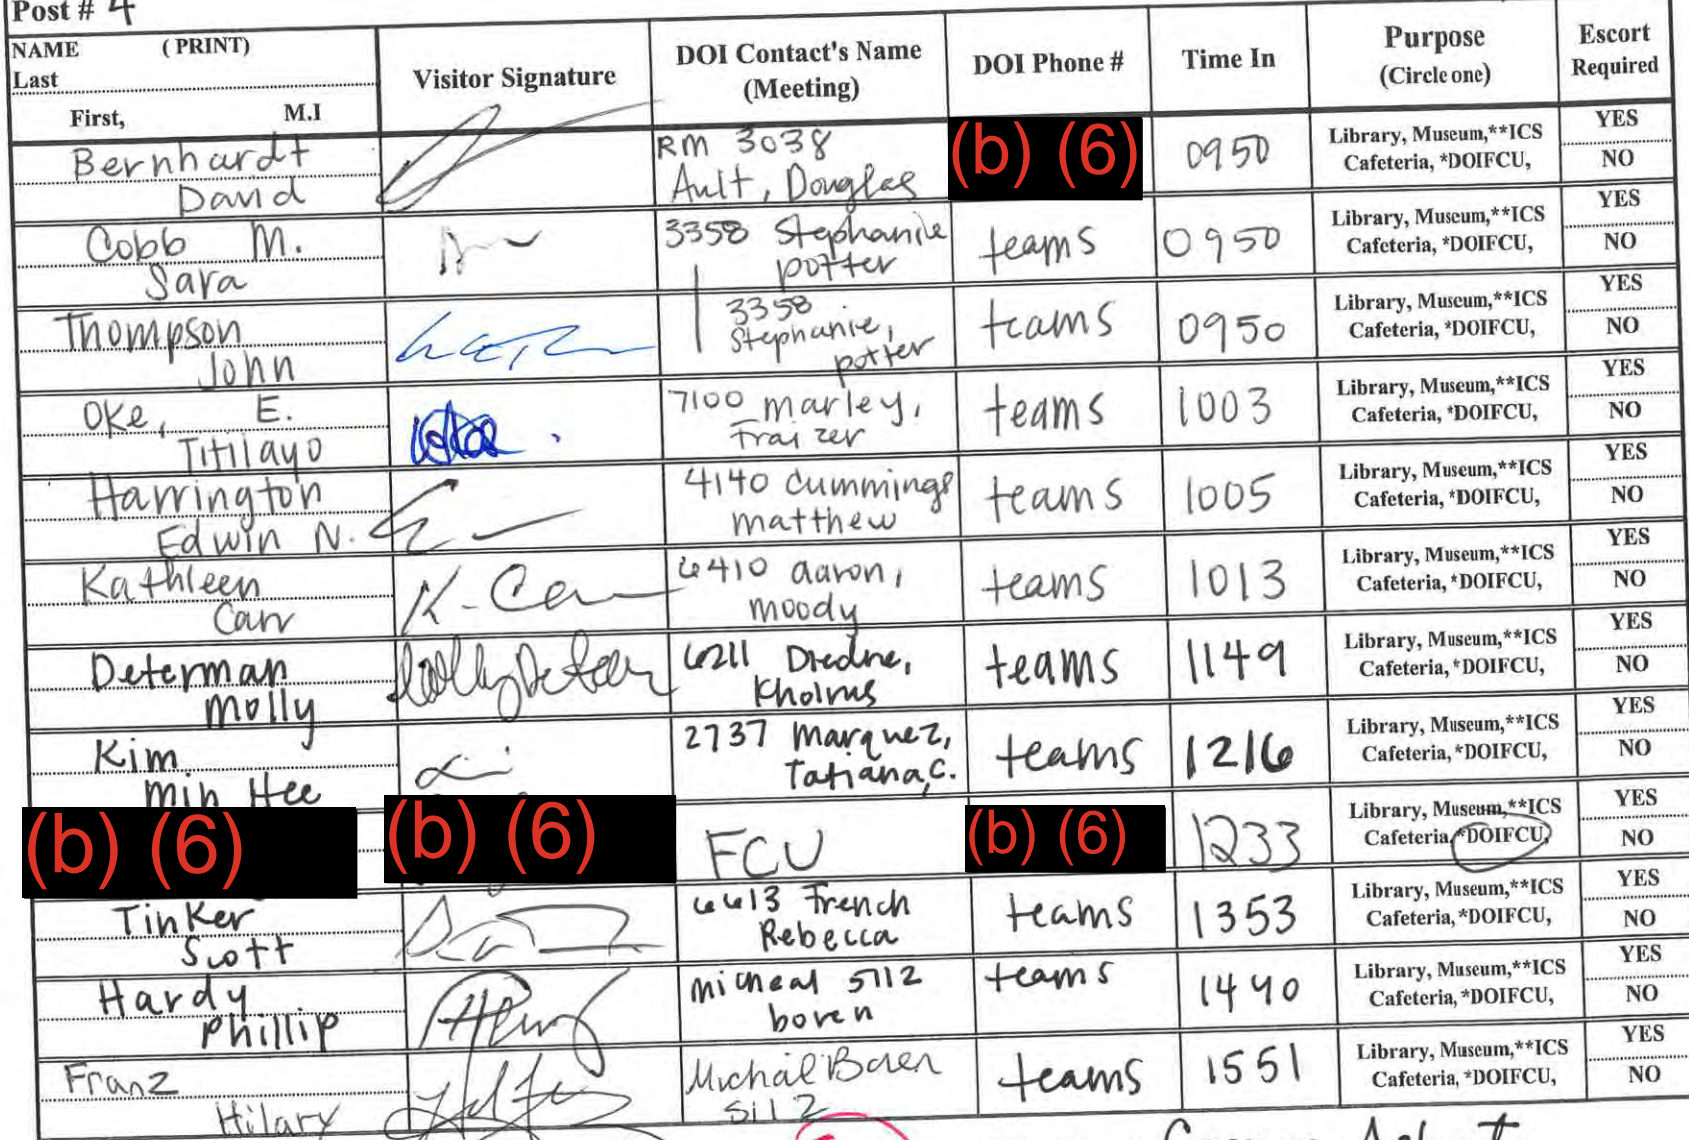 Post # 4
NAME (PRINT)
Last
First, M.I
Visitor Signature
DOI Contact's Name
(Meeting)
DOI Phone #
Time In
Purpose
(Circle one)
Escort
Required
Bernhardt
David
RM 3038
Ault, Douglas
(b) (6)
0950
Library, Museum,**ICS
Cafeteria, *DOIFCU,
YES
NO
Cobb M.
Sara
3358 Stephanie
potter
teams
0950
Library, Museum,**ICS
Cafeteria, *DOIFCU,
YES
NO
Thompson
John
3358
Stephanie,
potter
teams
0950
Library, Museum,**ICS
Cafeteria, *DOIFCU,
YES
NO
Oke, E.
Titilayo
7100 marley,
Fraizer
teams
1003
Library, Museum,**ICS
Cafeteria, *DOIFCU,
YES
NO
Harrington
Edwin N.
4140 Cummings
matthew
teams
1005
Library, Museum,**ICS
Cafeteria, *DOIFCU,
YES
NO
Kathleen
Carr
K. Ca
6410 aaron,
moody
teams
1013
Library, Museum,**ICS
Cafeteria, *DOIFCU,
YES
NO
Determan
Molly
6211
Kholrus
teams
1149
Library, Museum,**ICS
Cafeteria, *DOIFCU,
YES
NO
Kim
Min Hee
2737 Marquez,
Tatiana, C.
teams
1216
Library, Museum,**ICS
Cafeteria, *DOIFCU,
YES
NO
(b) (6)
(b) (6)
FCU
(b) (6)
1233
Library, Museum,**ICS
Cafeteria, *DOIFCU,
YES
NO
Tinker
Scott
6613 French
Rebecca
teams
1353
Library, Museum,**ICS
Cafeteria, *DOIFCU,
YES
NO
Hardy
Phillip
micheal 5112
boren
teams
1440
Library, Museum,**ICS
Cafeteria, *DOIFCU,
YES
NO
Franz
Hilary
Michael Boren
5112
teams
1551
Library, Museum,**ICS
Cafeteria, *DOIFCU,
YES
NO